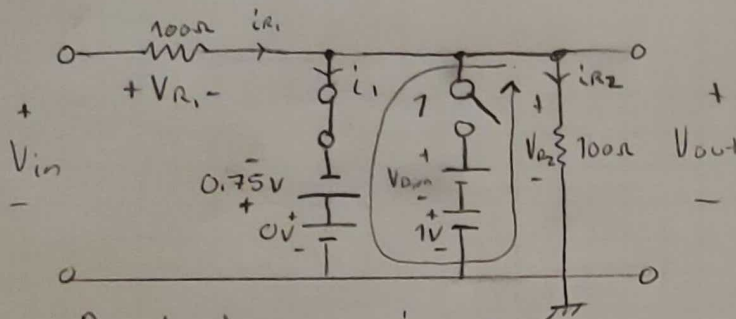 100Ω
iR1
+ VR1 -
i1
+
Vin
-
-
0.75V
+
0V
+
-
1
+
VDon
-
+
1V
-
iR2
+
VR2
-
100Ω
+
Vout
-